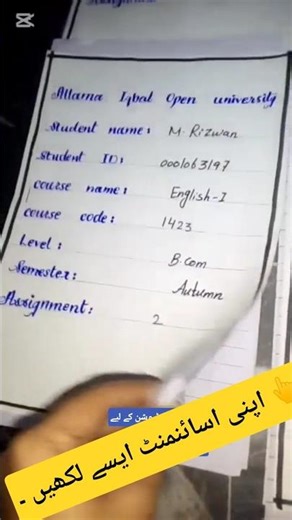 CapCut
Allama Iqbal Open university
Student name: M. Rizwan
Student ID: 0001063197
course name: English-I
course code: 1423
Level: B.com
Semester: Autumn
Assignment: 2
کے لیے
اپنی اسائنمنٹ ایسے لکھیں ۔